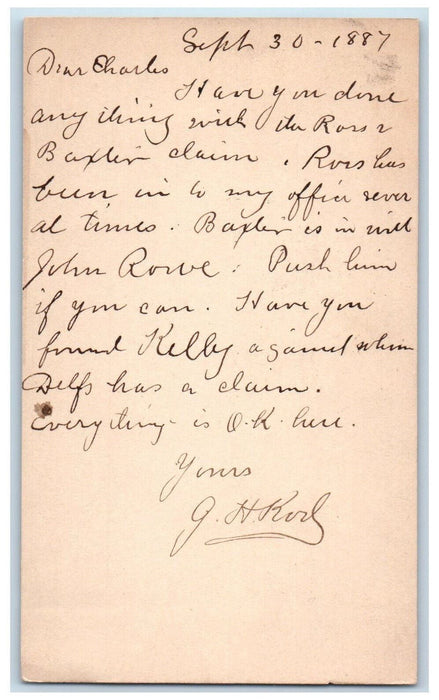 Sept 30 - 1887
Dear Charles
Have you done
any thing with the Ross &
Baxter claim. Ross has
been in to my office sever
al times. Baxter is in with
John Rowe. Push him
if you can. Have you
found Kelley against whom
Delfs has a claim.
Everything is O.K. here.
Yours
G. H.